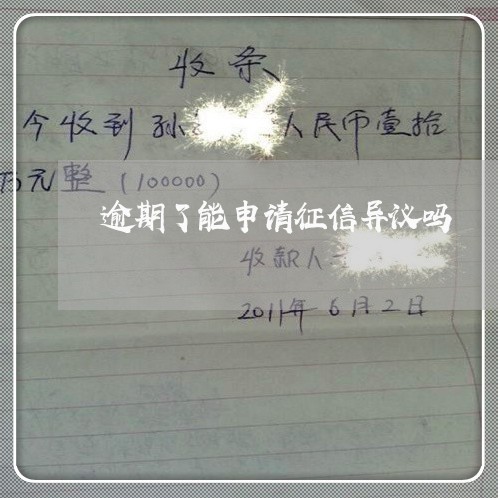 收条
今收到孙 人民币壹拾
万元整（100000）
逾期了能申请征信异议吗
收款人
2011年6月2日